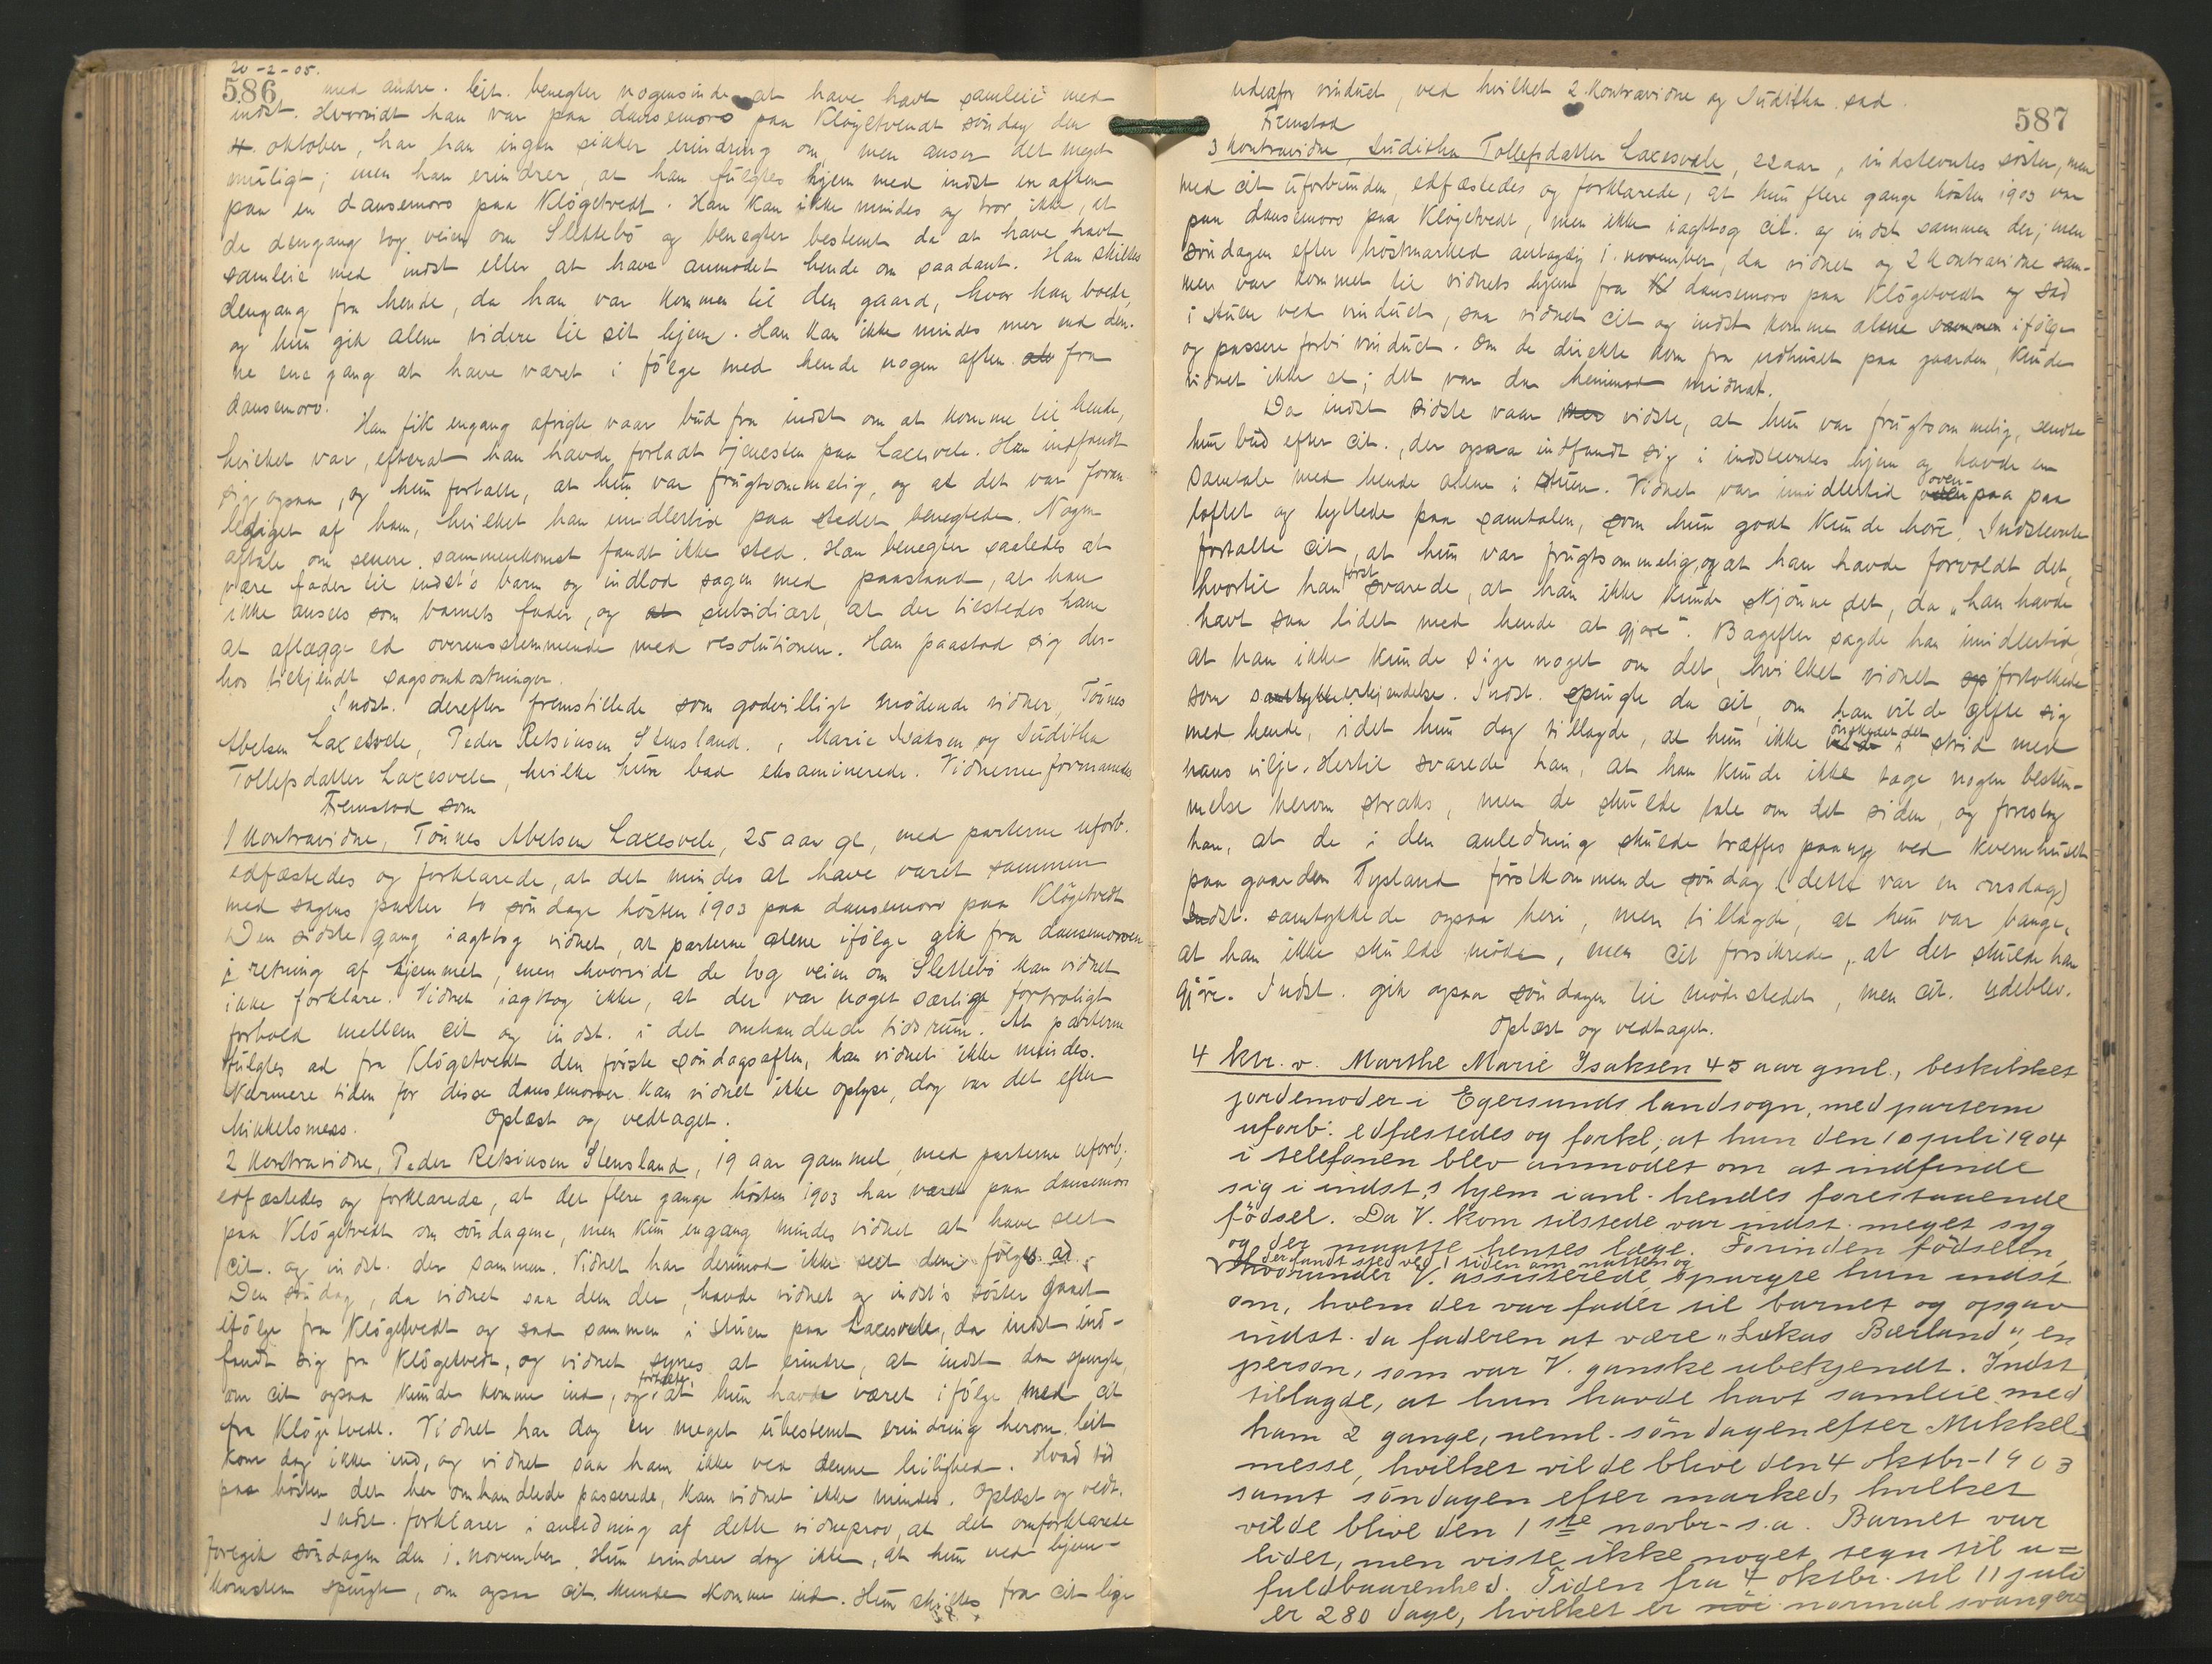 20-2-05.
586 med andre. Cit. benegter nogensinde at have havt samleie med
indst. Hvorvidt han var paa dansemoro paa Klögetvedt söndag den
4 oktober, har han ingen sikker erindring om, men anser det meget
muligt; men han erindrer, at han fulgtes hjem med indst en aften
paa en dansemoro paa Klögetvedt. Han kan ikke mindes og tror ikke, at
de dengang tog veien om Slettebö og benegter bestemt da at have havt
samleie med indst eller at have anmodet hende om saadant. Han skiltes
dengang fra hende, da han var kommen til den gaard, hvor han boede,
og hun gik alene videre til sit hjem. Han kan ikke mindes mer end den-
ne ene gang at have været i fölge med hende nogen aften fra
dansemoro.
Han fik engang afvigte vaar bud fra indst om at komme til hende,
hvilket var, efterat han havde forladt tjenesten paa Laxesvele. Han indfandt
sig ogsaa, og hun fortalte, at hun var frugtsommelig, og at det var foran
lediget af ham, hvilket han imidlertid paa stedet benegtede. Nogen
aftale om senere sammenkomst fandt ikke sted. Han benegter saaledes at
være fader til indst's barn og indlod sagen med paastand, at han
ikke ansees som barnets fader, og at subsidiært, at der tilstedes ham
at aflægge ed overensstemmende med resolutionen. Han paastod sig der-
hos tilkjendt sagsomkostninger.
Indst. derefter fremstillede som godvilligt mödende vidner, Tönnes
Abelsen Laxesvele, Peder Retsiusen Stensland, Marie Isaksen og Juditha
Tollefsdatter Laxesvele, hvilke hun bad eksaminerede. Vidnerne formanedes
Fremstod som
1 Kontravidne, Tönnes Abelsen Laxesvele, 25 aar gl, med parterne uforb.
edfæstedes og forklarede, at det mindes at have været sammen
med sagens parter to söndage hösten 1903 paa dansemoro paa Klögetvedt
Den sidste gang iagttog vidnet, at parterne alene ifölge gik fra dansemoroen
i retning af hjemmet, men hvorvidt de tog veien om Slettebö kan vidnet
ikke forklare. Vidnet iagttog ikke, at der var noget særlige fortroligt
forhold mellem cit og indst. i det omhandlede tidsrum. At parterne
fulgtes ad fra Klögetvedt den förste söndagsaften, kan vidnet ikke mindes.
Nærmere tiden for disse dansemoroer kan vidnet ikke oplyse, dog var det efter
Mikkelsmess. Oplæst og vedtaget.
2 Kontravidne, Peder Retsiusen Stensland, 19 aar gammel, med parterne uforb;
edfæstedes og forklarede, at det flere gange hösten 1903 har været paa dansemoro
paa Klögetvedt om söndagene, men kun engang mindes vidnet at have seet
cit. og indst. der sammen. Vidnet har derimod ikke seet dem fölges ad.
Den söndag, da vidnet saa dem der, havde vidnet og indst's söster gaaet
ifölge fra Klögetvedt og sad sammen i stuen paa Laxesvele, da indst ind-
fandt sig fra Klögetvedt, og vidnet synes at erindre, at indst da spurgte
om cit ogsaa kunde komme ind, og fortalte, at hun havde været ifölge med cit
fra Klögetvedt. Vidnet har dog en meget ubestemt erindring herom. Cit
kom dog ikke ind, og vidnet saa ham ikke ved denne leilighed. Hvad tid
paa hösten det her omhandlede passerede, kan vidnet ikke mindes. Oplæst og vedt.
Indst. forklarer i anledning af dette vidneprov, at det omforklarede
foregik söndagen den 1. november. Hun erindrer dog ikke, at hun ved hjem-
komsten spurgte, om ogsaa cit. kunde komme ind. Hun skiltes fra cit lige
udenfor vinduet, ved hvilket 2. Kontravidne og Juditha sad.
587
Fremstod
3 Kontravidne, Juditha Tollefsdatter Laxesvele, 22 aar, indstevntes söster, men
med cit uforbunden, edfæstedes og forklarede, at hun flere gange hösten 1903 var
paa dansemoro paa Klögetvedt, men ikke iagttog cit. og indst sammen der; men
söndagen efter höstmarked antagelig 1. november, da vidnet og 2 Kontravidne sam-
men var kommet til vidnets hjem fra dansemoro paa Klögetvedt og sad
i stuen ved vinduet, saa vidnet cit og indst komme alene sammen ifölge
og passere forbi vinduet. Om de direkte kom fra udhuset paa gaarden, kunde
vidnet ikke se; det var da henimod midnat.
Da indst sidste vaar vidste, at hun var frugtsommelig, sendte
hun bud efter cit., der ogsaa indfandt sig i indstevntes hjem og havde en
samtale med hende alene i stuen. Vidnet var imidlertid ovenpaa paa
loftet og lyttede paa samtalen, som hun godt kunde höre. Indstevnte
fortalte cit, at hun var frugtsommelig, og at han havde forvoldt det,
hvortil han först svarede, at han ikke kunde skjönne det, da "han havde
havt saa lidet med hende at gjøre". Bagefter sagde han imidlertid,
at han ikke kunde sige noget om det, hvilket vidnet fortolkede
som erkjendelse. Indst. spurgte da cit, om han vilde gifte sig
med hende, idet hun dog tillagde, at hun ikke önskedet det i strid med
hans vilje. Hertil svarede han, at han kunde ikke tage nogen bestem-
melse herom straks, men de skulde tale om det siden, og foreslog
han, at de i den anledning skulde træffes paany ved kvernhuset
paa gaarden Tyssland förstkommende söndag (dette var en onsdag)
Indst. samtykkede ogsaa heri, men tillagde, at hun var bange,
at han ikke skulde möde, men cit forsikrede, at det skulde han
gjöre. Indst. gik ogsaa söndagen til mödestedet, men cit. udeblev.
Oplæst og vedtaget.
4 ktr. v. Marthe Marie Isaksen 45 aar gml., beskikket
jordemoder i Egersunds landsogn, med parterne
uforb. edfæstedes og forkl; at hun den 10 juli 1904
i telefonen blev anmodet om at indfinde
sig i indst.s hjem i anl. hendes forestaaende
födsel. Da V. kom tilstede var indst. meget syg
og der maatte hentes læge. Forinden födselen,
der fandt sted ved 1 tiden om natten og
hvorunder V. assisterede, spurgte hun indst
om, hvem der var fader til barnet og opgav
indst. da faderen at være "Lukas Bærland", en
person, som var V. ganske ubekjendt. Indst
tillagde, at hun havde havt samleie med
ham 2 gange, neml. söndagen efter Mikkels-
messe, hvilket vilde blive den 4 oktbr. 1903
samt söndagen efter marked, hvilket
vilde blive den 1ste novbr. s.a. Barnet var
lidet, men viste ikke noget tegn til u=
fuldbaarenhed. Tiden fra 4 oktbr. til 11 juli
er 280 dage, hvilket er normal svanger=